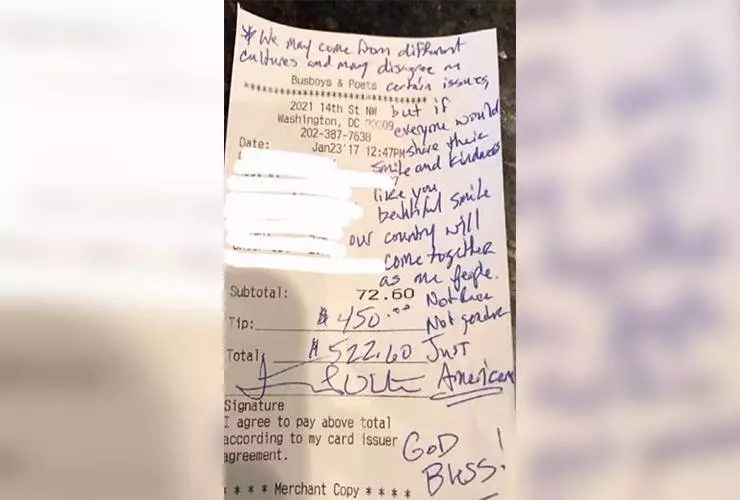 * We may come from different
cultures and may disagree on
certain issues,
Busboys & Poets
********************************
2021 14th St NW
but if
Washington, DC 20009
everyone would
202-387-7638
share their
Date: Jan23'17 12:47PM
smile and kindness
7
like you
beautiful smile
our country will
come together
as one people.
Subtotal: 72.60
Not Race
Tip: $ 450.00
Not gender
Total: $ 522.60
Just
American
Signature
I agree to pay above total
according to my card issuer
agreement.
GOD
Bless!
* * * * Merchant Copy * * * *